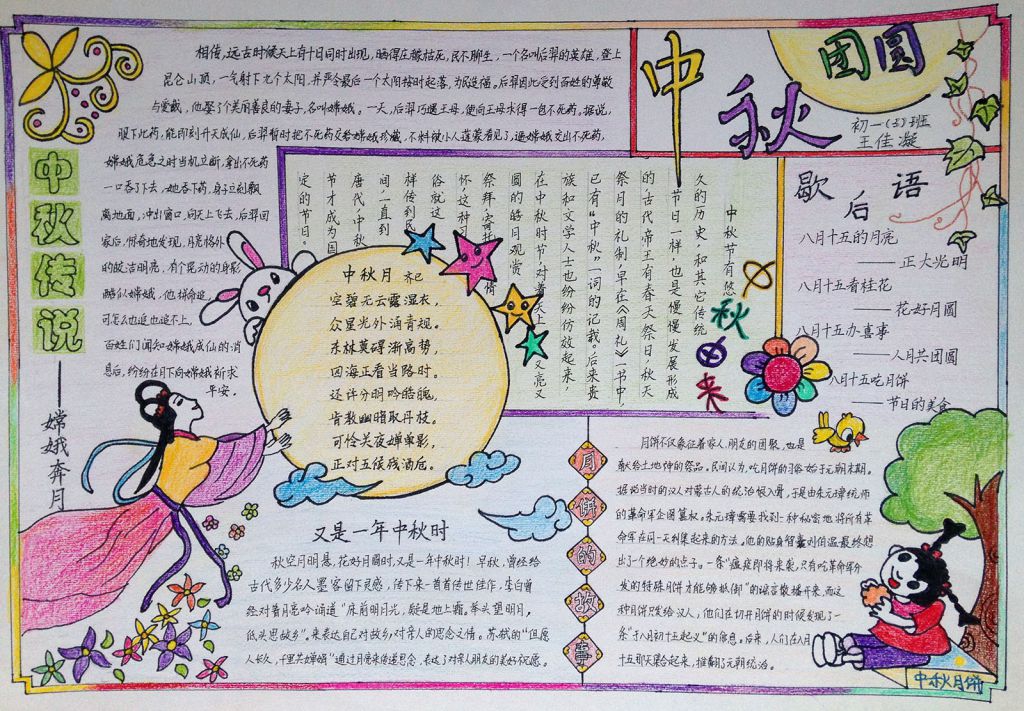 中秋
团圆
初一(3)班
王佳凝
中秋传说
——嫦娥奔月
相传，远古时候天上有十日同时出现，晒得庄稼枯死，民不聊生，一个名叫后羿的英雄，登上
昆仑山顶，一气射下九个太阳，并严令最后一个太阳按时起落，为民造福。后羿因此受到百姓的尊敬
与爱戴，他娶了个美丽善良的妻子，名叫嫦娥。一天，后羿巧遇王母，便向王母求得一包不死药。据说，
服下此药，能即刻升天成仙，后羿暂时把不死药交给嫦娥珍藏，不料被小人蓬蒙看见了，逼嫦娥交出不死药，
嫦娥危急之时当机立断，拿出不死药
一口吞了下去，她吞下药，身子立刻飘
离地面，冲出窗口，向天上飞去，后羿回
家后，惊奇地发现，月亮格外
的皎洁明亮，有个晃动的身影
酷似嫦娥，他拼命追
可怎么也追也追不上。
百姓们闻知嫦娥成仙的消
息后，纷纷在月下向嫦娥祈求
平安。
秋由来
中秋节有悠
久的历史，和其它传统
节日一样，也是慢慢发展形成
的，古代帝王有春天祭日，秋天
祭月的礼制，早在《周礼》一书中，
已有“中秋”一词的记载。后来贵
族和文学人士也纷纷仿效起来，
在中秋时节，对着天上又亮又
圆的皓月观赏
祭拜，寄托 情
怀，这种习
俗就这
样传到民
间，一直到
唐代，中秋
节才成为固
定的节日。
中秋月 齐己
空碧无云露湿衣，
众星光外涌青规。
东林莫碍渐高势，
四海正看当路时。
还许分明吟皓魄，
肯教幽暗取丹枝。
可怜关夜婵单影，
正对五侯残酒后。
歇后语
八月十五的月亮
——正大光明
八月十五看桂花
——花好月圆
八月十五办喜事
——人月共团圆
八月十五吃月饼
——节日的美食
又是一年中秋时
秋空月明悬，花好月圆时，又是一年中秋时！早秋，曾经给
古代多少名人墨客留下灵感，传下来一首首传世佳作，李白曾
经对着月亮吟诵道“床前明月光，疑是地上霜，举头望明月，
低头思故乡”。来表达自己对故乡，对亲人的思念之情。苏轼的“但愿
人长久，千里共婵娟”通过月亮来传递思念，表达了对亲人朋友的美好祝愿。
月饼的故事
月饼不仅象征着家人、朋友的团聚，也是
献给土地神的祭品。民间认为，吃月饼的习俗始于元朝末期。
据说当时的汉人对蒙古人的统治恨入骨，于是由朱元璋统帅
的革命军企图篡权。朱元璋需要找到一种秘密地将所有革
命军在同一天到集起来的方法。他的贴身智囊刘伯温最终想
出了个绝妙的点子。一条“瘟疫即将来袭，只有吃革命军分
发的特殊月饼才能够抵御”的谣言散播开来，而这
种月饼只发给汉人，他们在切开月饼的时候发现了一
条“于八月初十五起义”的信息。后来，人们在八月
十五那天集合起来，推翻了元朝统治。
中秋月饼